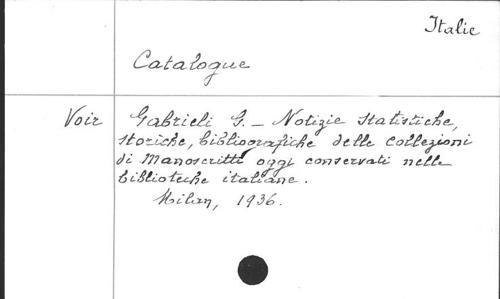 Italie
Catalogue
Voir Gabrieli G. _ Notizie statistiche,
storiche, bibliografiche delle collezioni
di Manoscritti oggi conservati nelle
biblioteche italiane.
Milan, 1936.